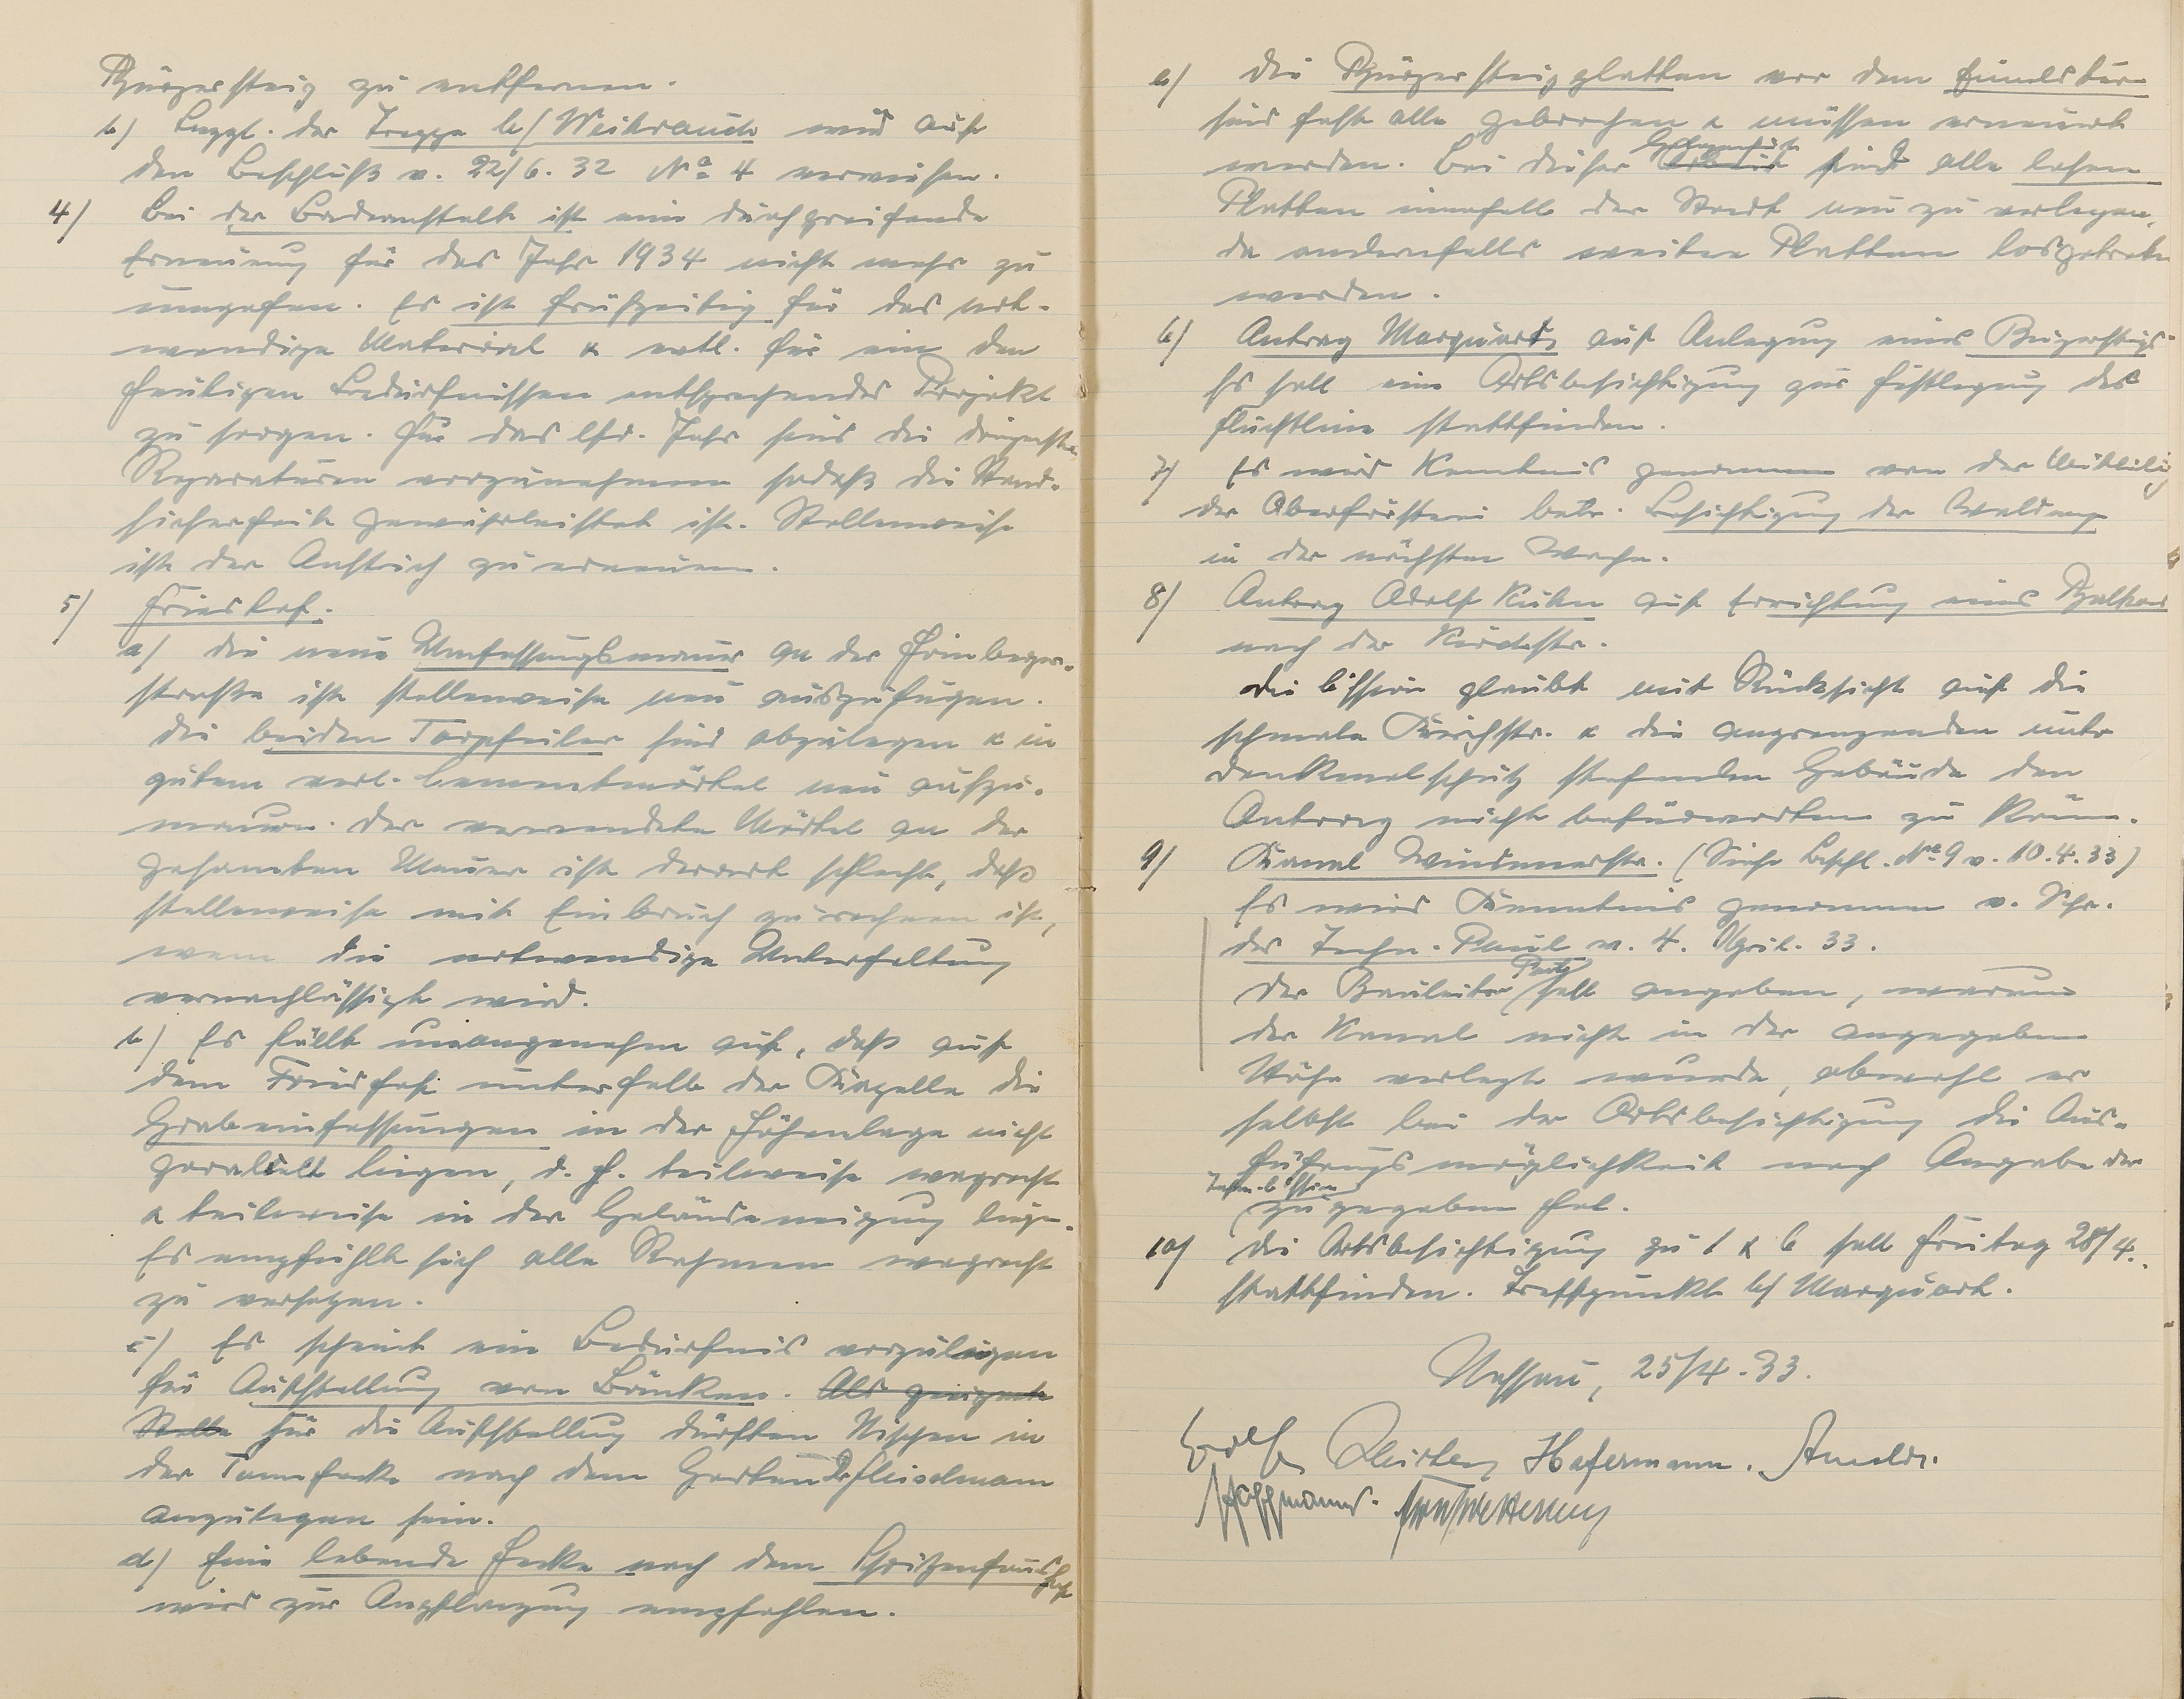 Bürgersteig zu entfernen.
b) Bezgl. der Treppe b/ Weihrauch wird auf
den Beschluß v. 22/6. 32 No 4 verwiesen.
4/ Bei der Badeanstalt ist eine durchgreifende
Erneuerung für das Jahr 1934 nicht mehr zu
umgehen. Es ist frühzeitig für das not-
wendige Material & evtl. für ein den
heutigen Bedürfnissen entsprechendes Projekt
zu sorgen. Für das lfd. Jahr sind die dringensten
Reparaturen vorzunehmen sodaß die Stand-
sicherheit gewährleistet ist. Stellenweise
ist der Anstrich zu erneuern.
5/ Friedhof.
a/ Die neue Umfassungsmauer an der
straße ist stellenweise neu auszufugen.
Die beiden Torpfeiler sind abzulegen & in
gutem verl. Cementmörtel neu aufzu-
mauern. Der verwendete Mörtel an der
gesamten Mauer ist derart schlecht, daß
stellenweise mit Einbruch zu rechnen ist,
wenn die notwendige Unterhaltung
vernachlässigt wird.
b) Es fällt unangenehm auf, daß auf
dem Friedhof unterhalb der Kapelle die
Grabeinfassungen in der Höhenlage nicht
parallel liegen, d. h. teilweise wagrecht
& teilweise in der Geländeneigung liegen.
Es empfiehlt sich alle Rahmen wagrecht
zu versetzen.
c) Es scheint ein Bedürfnis vorzuliegen
für Aufstellung von Bänken. Als geeignete
Stelle Für die Aufstellung dürften Nischen in
der Tannhecke nach dem Garten Pfleiselmann
anzulegen sein.
d) Eine lebende Hecke nach dem Spritzenhaus
wird zur Anpflanzung empfohlen.
e/ Die Bürgersteigplatten vor dem
sind fast alle gebrochen & müssen erneuert
werden. Bei dieser Arbeit Gelegenheit sind alle losen
Platten innerhalb der Stadt neu zu verlegen,
da andernfalls weitere Platten losgetreten
werden.
6/ Antrag Marquart, auf Anlegung eines Bürgersteigs
Es soll eine Ortsbesichtigung zur Festlegung der
Fluchtlinie stattfinden.
7/ Es wird Kenntnis genommen von der Mitteilg
der Oberförsterei betr. Besichtigung der Waldungen
in der nächsten Woche.
8/ Antrag Adolf Kuhn auf Errichtung eines Balkons
nach der Kirchstr.
Die C'ssion glaubt mit Rücksicht auf die
schmale Kirchstr. & die angrenzenden unter
Denkmalschutz stehenden Gebäude den
Antrag nicht befürworten zu können.
9/ Kanal Windenerstr. (Siehe Beschl. No 9 v. 10.4.33)
Es wird Kenntnis genommen v. Schr.
des Techn. Paul v. 4. April. 33.
Der Bauleiter Paul soll angeben, warum
der Kanal nicht in der angegebenen
Höhe verlegt wurde, obwohl er
selbst bei der Ortsbesichtigung die Aus-
führungsmöglichkeit nach Angabe der
C'ssion
zugegeben hat.
10/ Die Ortsbesichtigung zu 1 & 6 soll Freitag 28/4.
stattfinden. Treffpunkt b/ Marquart.
Nassau, 25/4.33.
Hafermann.
Hoffmann.